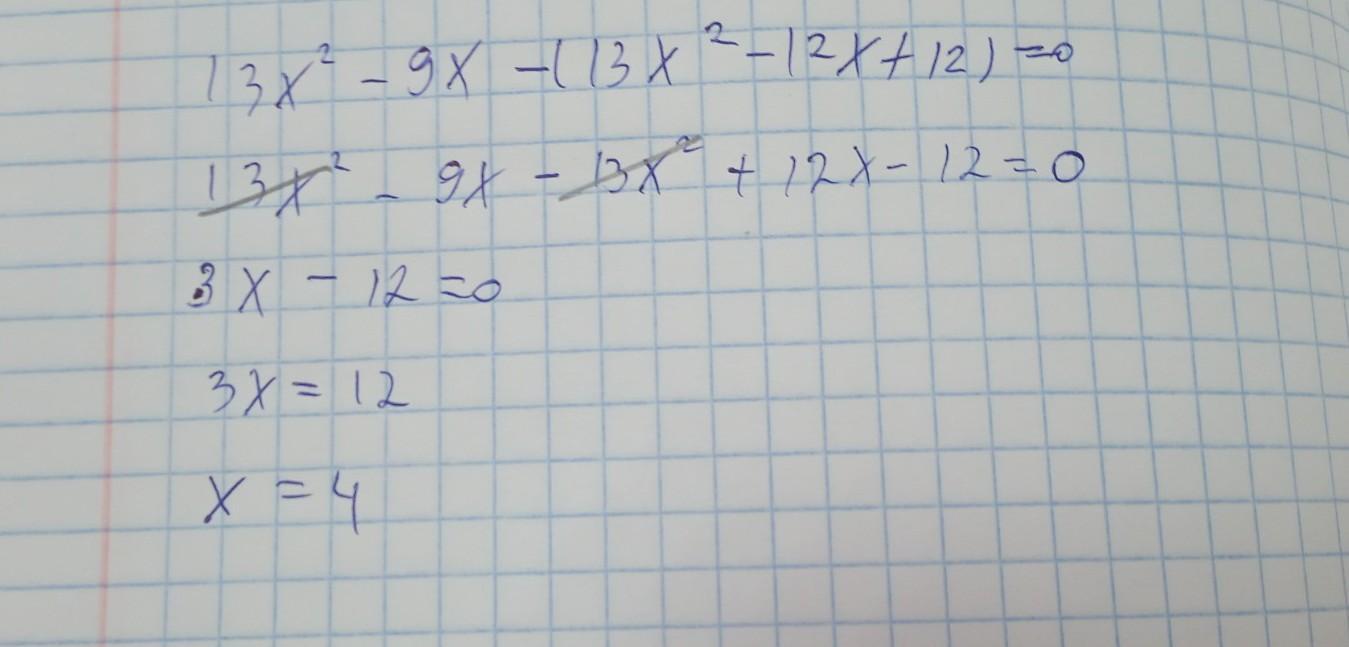 13x² - 9x - (13x² - 12x + 12) = 0
13x² - 9x - 13x² + 12x - 12 = 0
3x - 12 = 0
3x = 12
x = 4